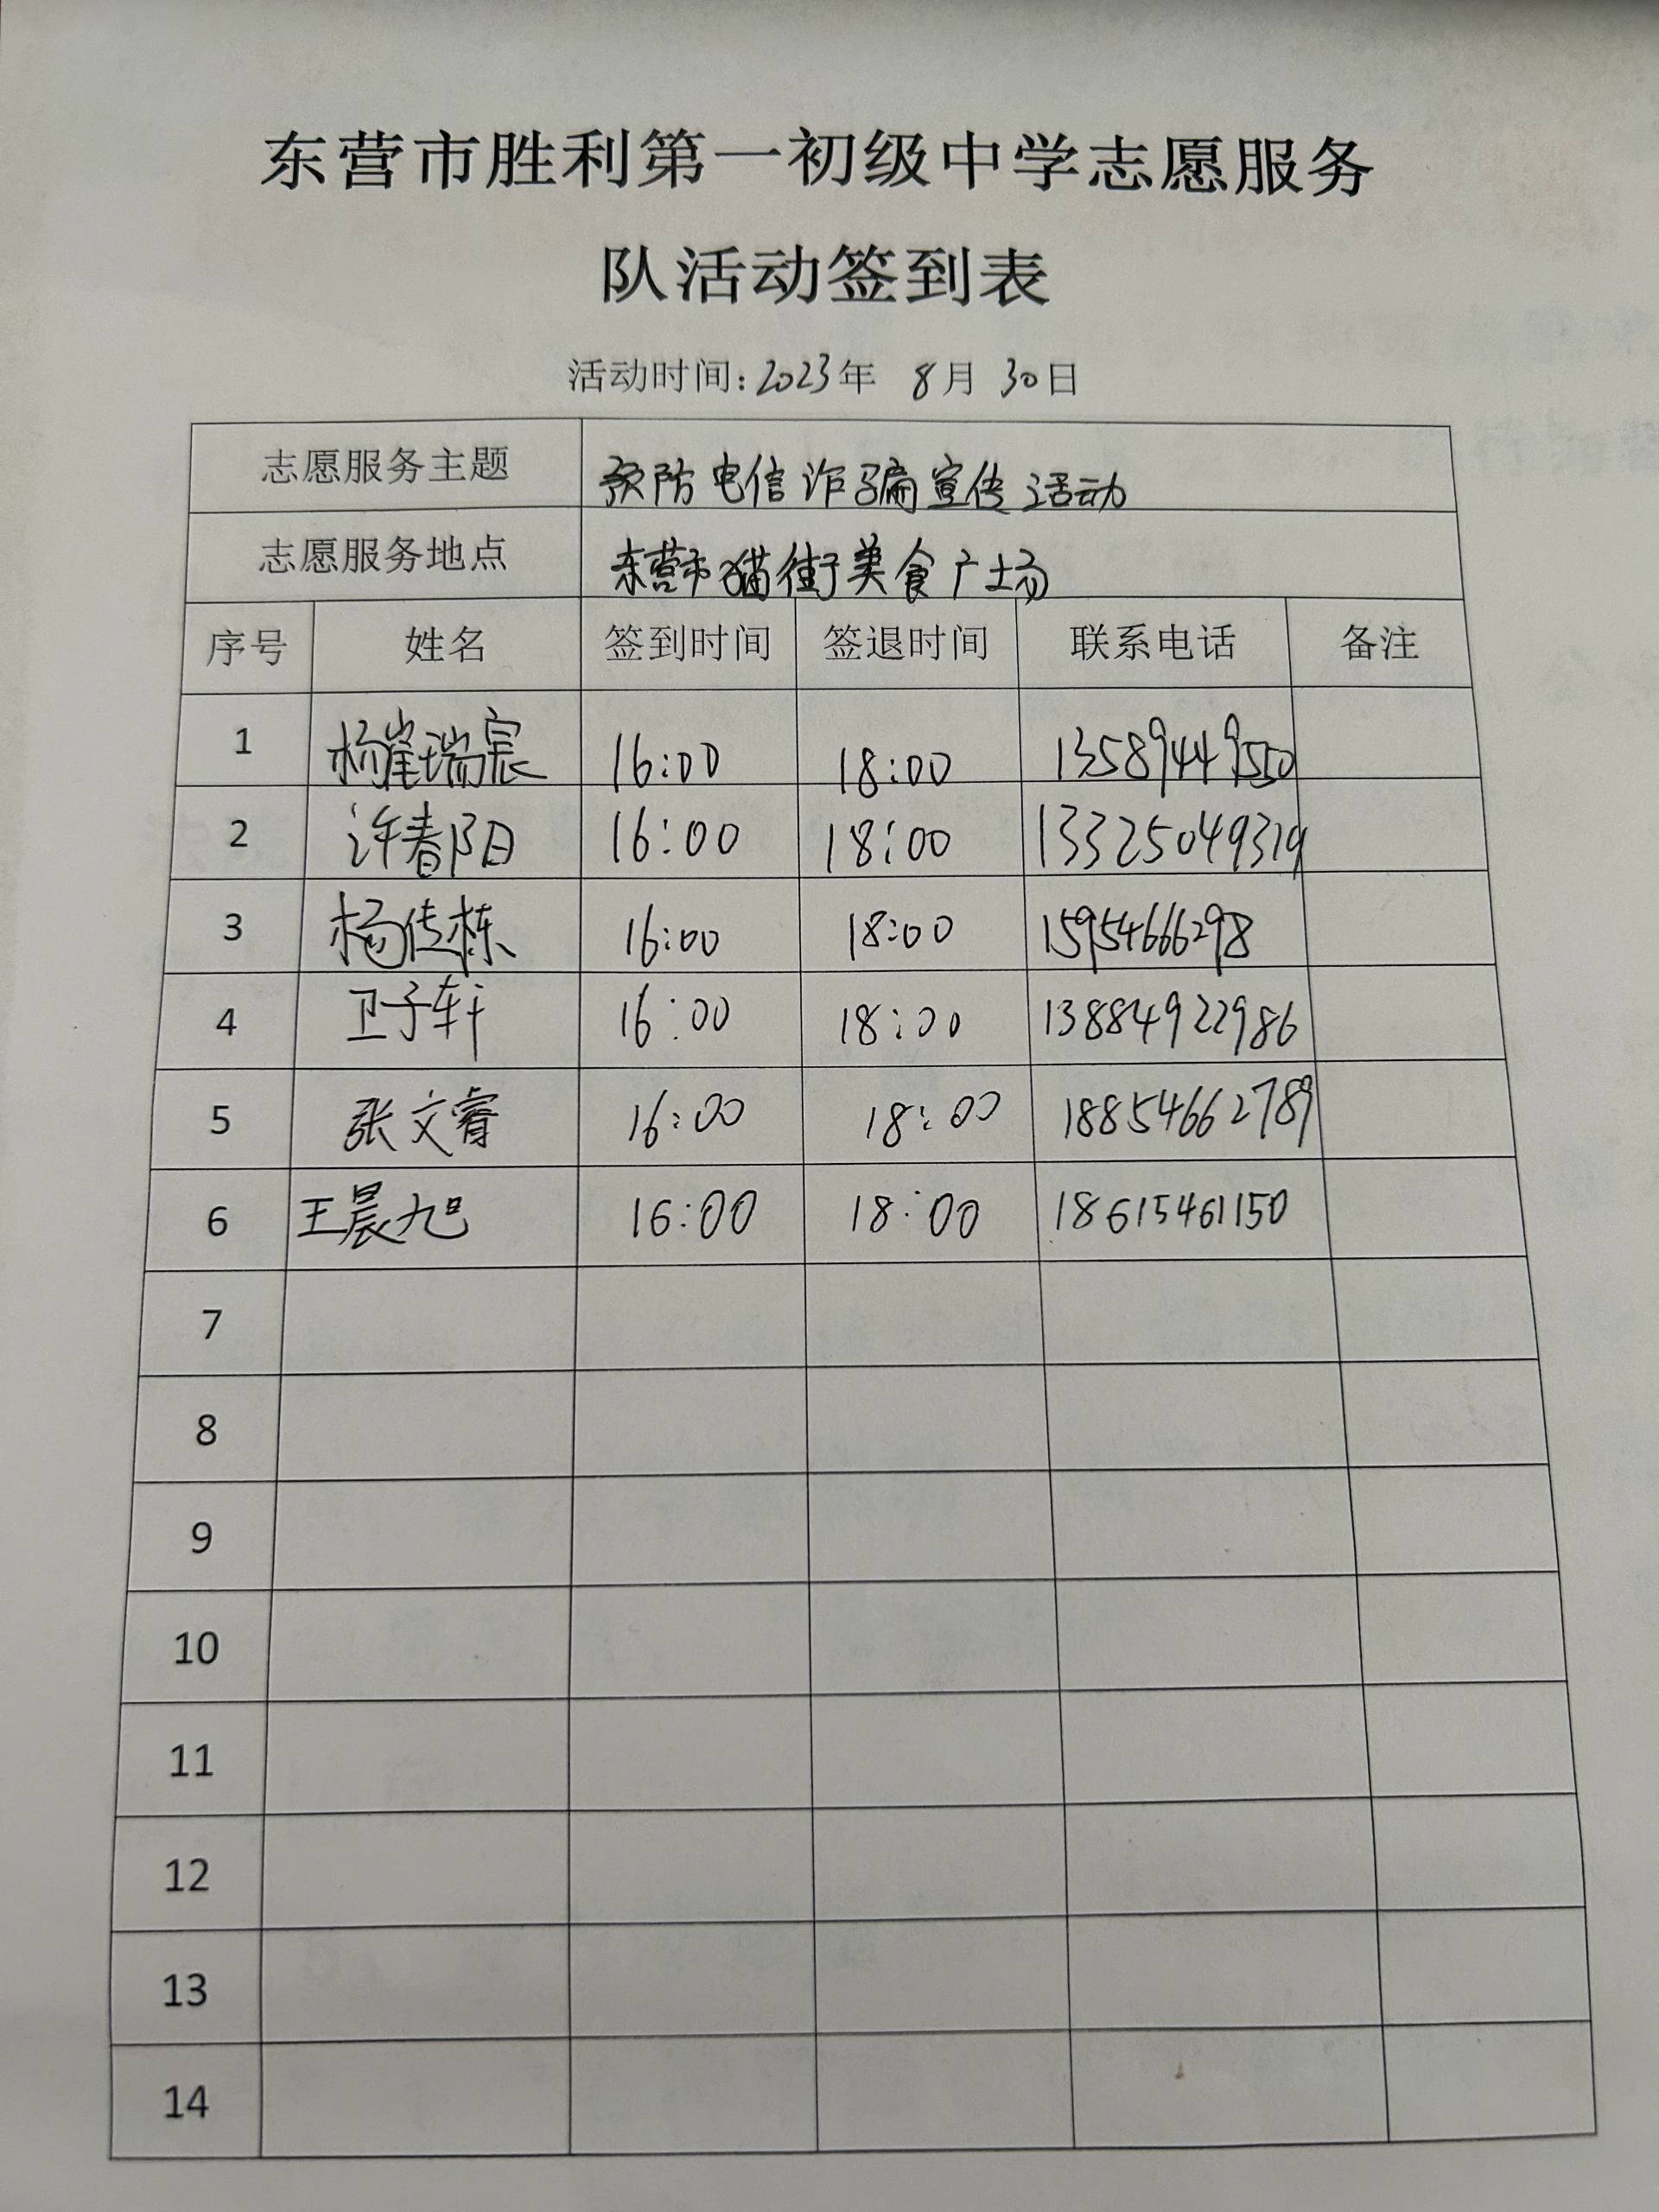 东营市胜利第一初级中学志愿服务
队活动签到表
活动时间:2023年 8月 30日
志愿服务主题 预防电信诈骗宣传活动
志愿服务地点 东营市猫街美食广场
序号 姓名 签到时间 签退时间 联系电话 备注
1 杨崔瑞宸 16:00 18:00 13589449550
2 许春阳 16:00 18:00 13325049319
3 杨传栋 16:00 18:00 15954666298
4 卫子轩 16:00 18:00 13884922986
5 张文睿 16:00 18:00 18854662789
6 王晨旭 16:00 18:00 18615461150
7
8
9
10
11
12
13
14